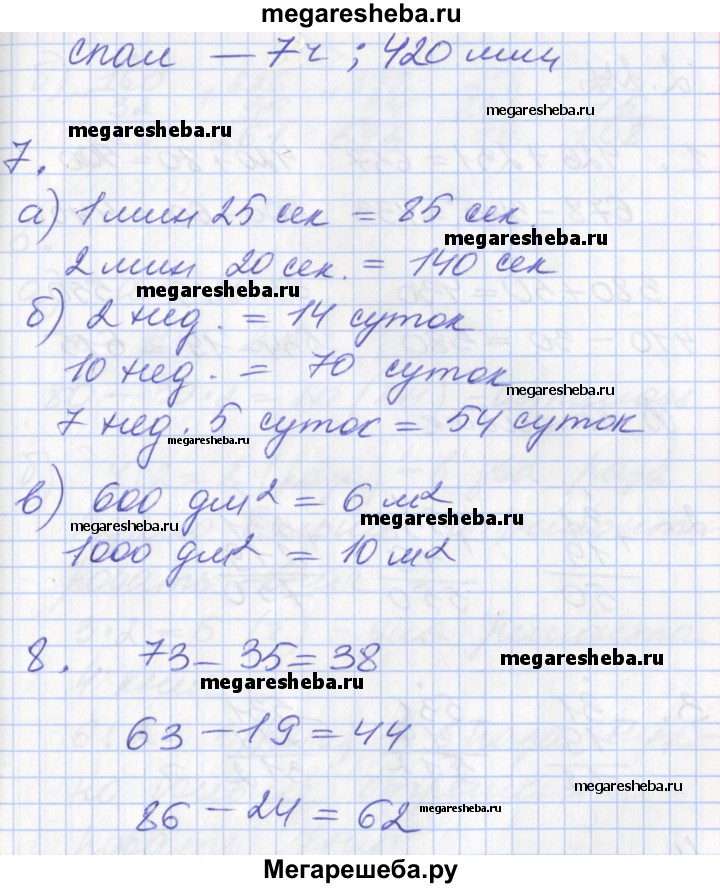 megaresheba.ru
спал — 7ч ; 420 мин
megaresheba.ru
megaresheba.ru
7.
а) 1 мин 25 сек = 85 сек.
megaresheba.ru
2 мин 20 сек. = 140 сек
megaresheba.ru
б) 2 нед. = 14 суток
10 нед. = 70 суток
megaresheba.ru
7 нед. 5 суток = 54 суток
megaresheba.ru
в) 600 дм² = 6 м²
megaresheba.ru
megaresheba.ru
1000 дм² = 10 м²
8. 73 – 35 = 38
megaresheba.ru
megaresheba.ru
63 – 19 = 44
megaresheba.ru
86 – 24 = 62
megaresheba.ru
Мегарешеба.ру